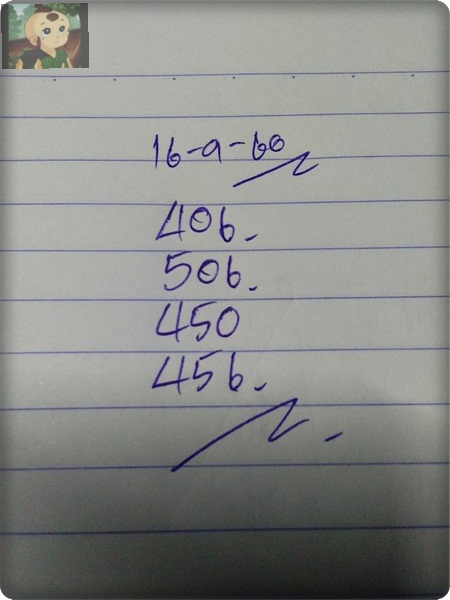 16-9-60
406.
506.
450
456.